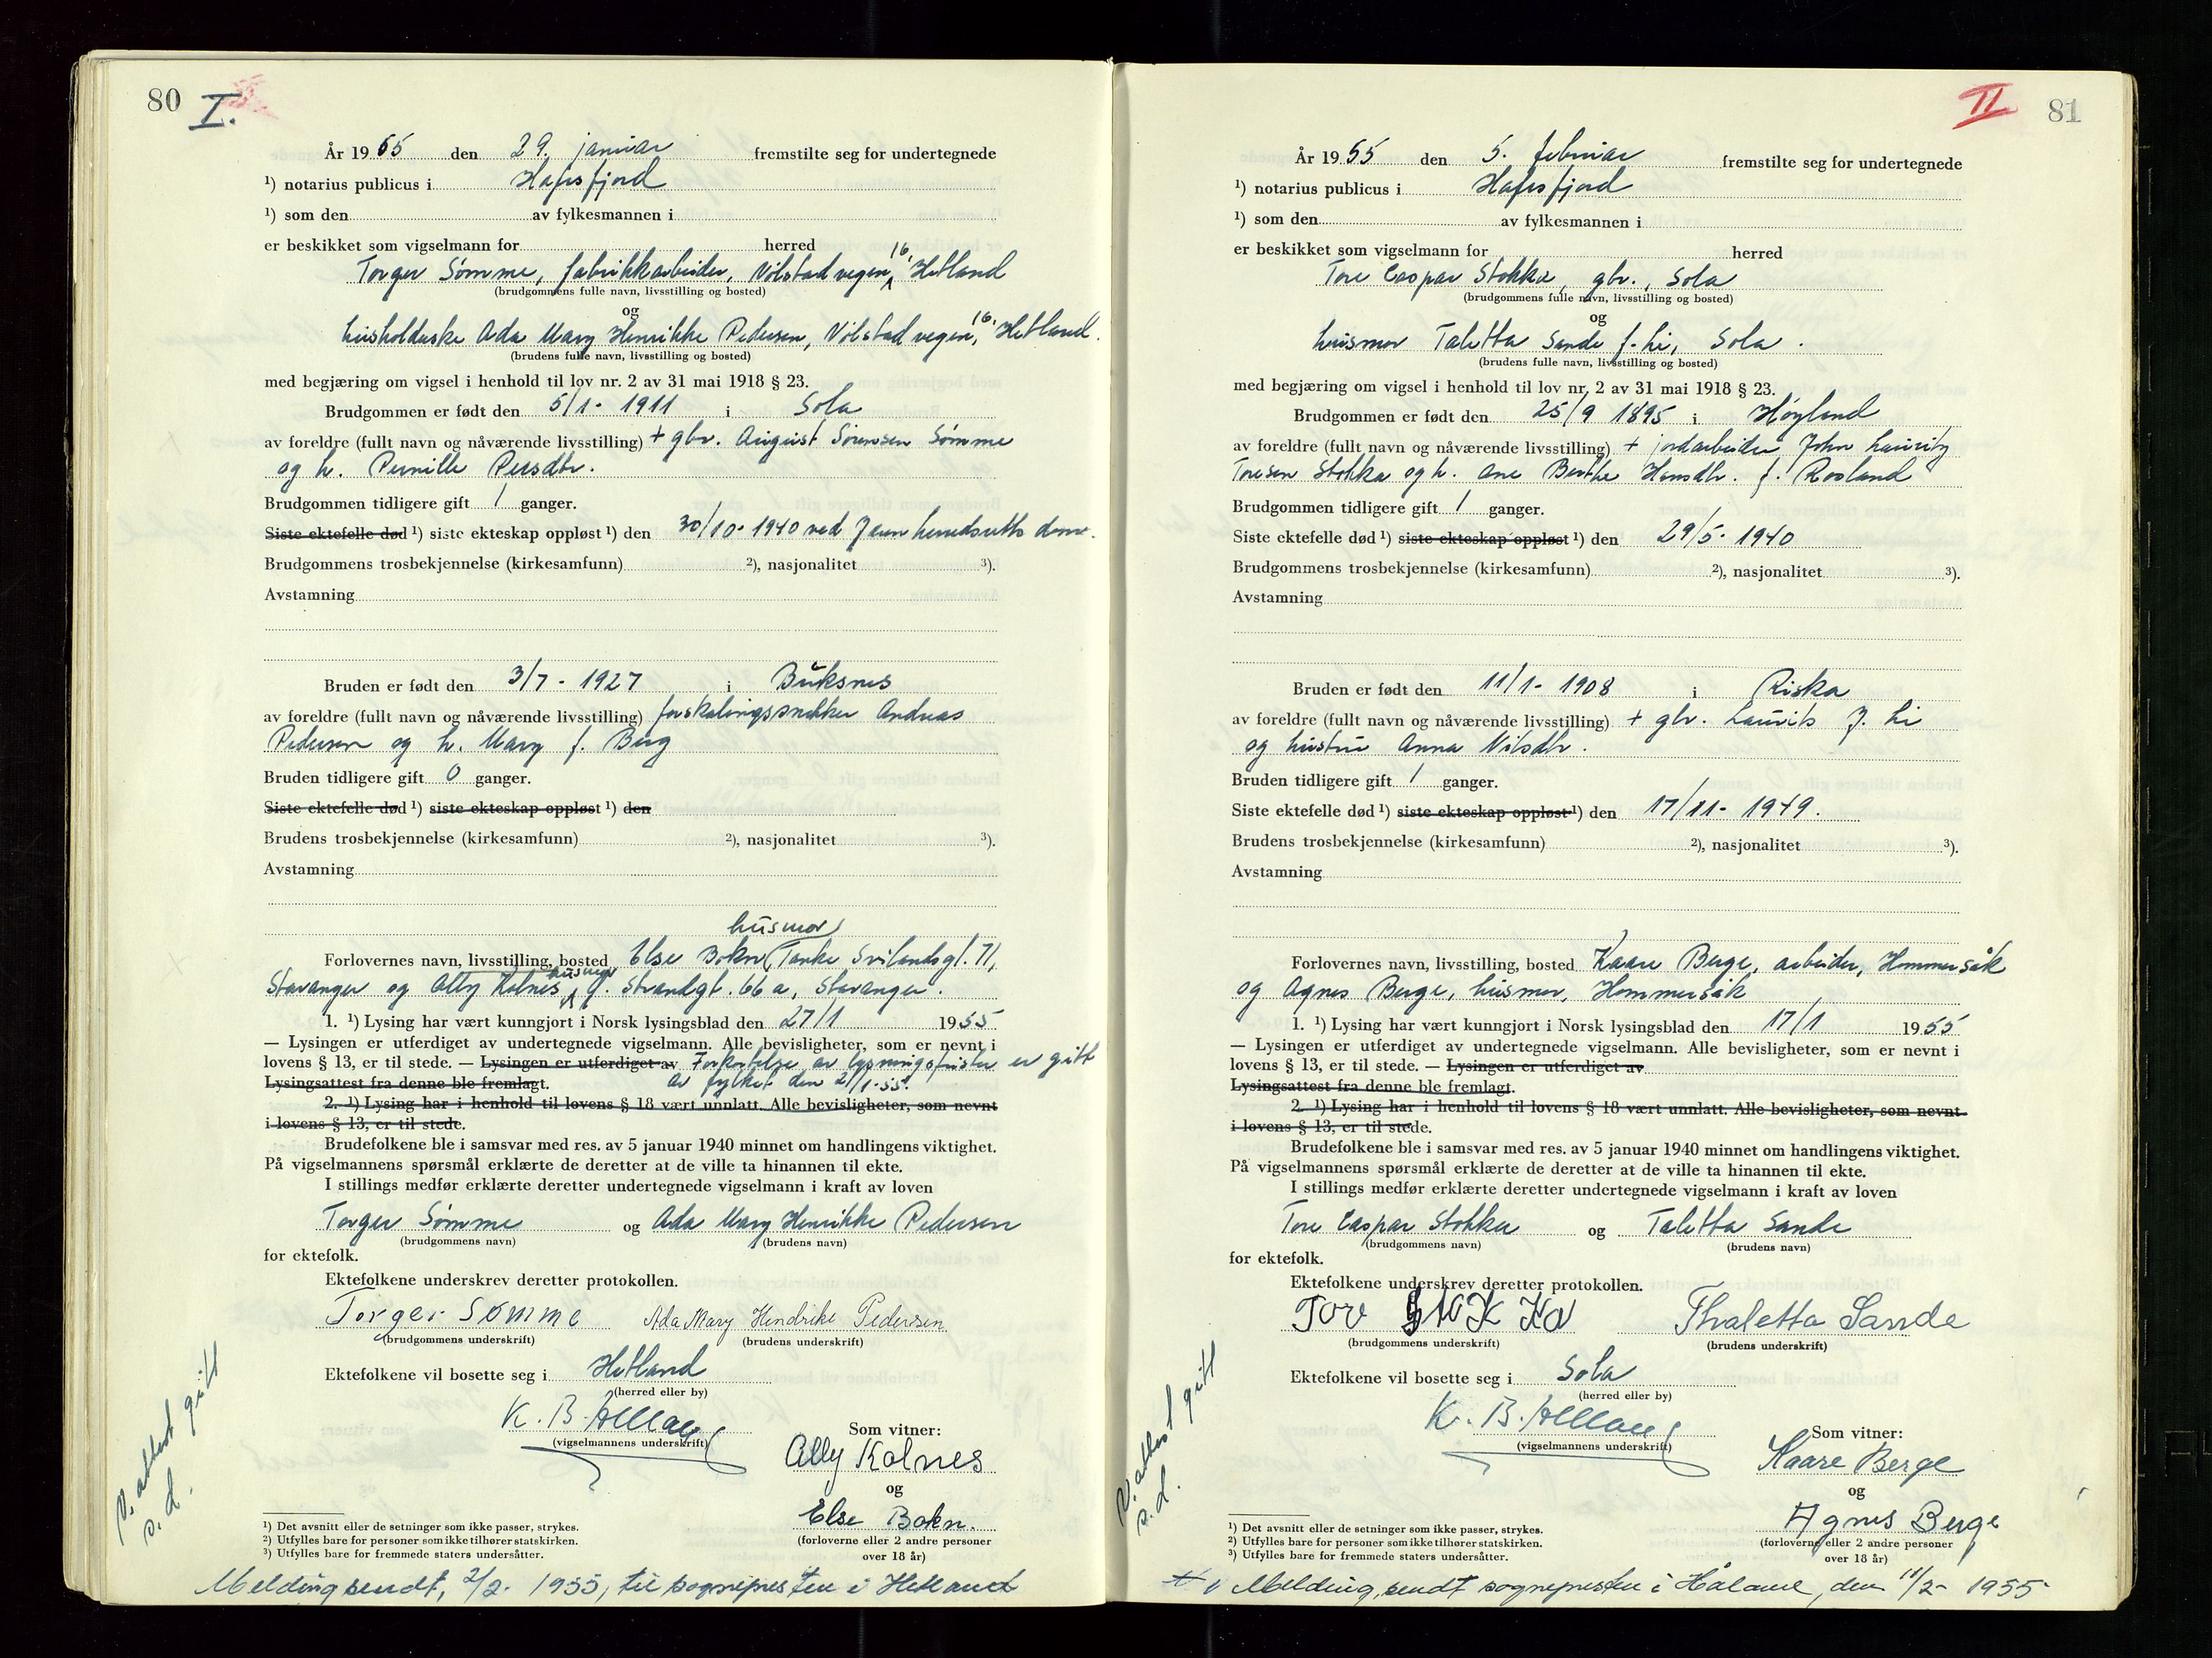 80 I.
År 1955 den 29. januar fremstilte seg for undertegnede
¹) notarius publicus i Hafrsfjord
¹) som den av fylkesmannen i
er beskikket som vigselmann for herred
16,
Torger Sømme, fabrikkarbeider, Nølstadvegen, Hetland
(brudgommens fulle navn, livsstilling og bosted)
og
husholderske Ada Mary Henrikke Pedersen, Nølstadvegen, 16. Hetland.
(brudens fulle navn, livsstilling og bosted)
med begjæring om vigsel i henhold til lov nr. 2 av 31 mai 1918 § 23.
Brudgommen er født den 5/1- 1911 i Sola
av foreldre (fullt navn og nåværende livsstilling) + gbr. August Sørensen Sømme
og h. Pernille Persdtr.
Brudgommen tidligere gift 1 ganger.
Siste ektefelle død ¹) siste ekteskap oppløst ¹) den 30/10- 1940 ved Jæren herredsretts dom.
Brudgommens trosbekjennelse (kirkesamfunn) ²), nasjonalitet ³).
Avstamning
Bruden er født den 3/7- 1927 i Buksnes
av foreldre (fullt navn og nåværende livsstilling) forskalingssnekker Andreas
Pedersen og h. Mary f. Berg
Bruden tidligere gift 0 ganger.
Siste ektefelle død ¹) siste ekteskap oppløst ¹) den
Brudens trosbekjennelse (kirkesamfunn) ²), nasjonalitet ³).
Avstamning
husmor
Forlovernes navn, livsstilling, bosted Else Bokn, Tanke Svilandsgt. 71,
husmor
Stavanger og Ally Kolnes, Ø. Strandgt. 66 a, Stavanger.
1. ¹) Lysing har vært kunngjort i Norsk lysingsblad den 27/1 1955
— Lysingen er utferdiget av undertegnede vigselmann. Alle bevisligheter, som er nevnt i
lovens § 13, er til stede. — Lysingen er utferdiget av Forkortelse av lysningsfristen er gitt
Lysingsattest fra denne ble fremlagt. av fylket den 21/1-55.
2. ¹) Lysing har i henhold til lovens § 18 vært unnlatt. Alle bevisligheter, som nevnt
i lovens § 13, er til stede.
Brudefolkene ble i samsvar med res. av 5 januar 1940 minnet om handlingens viktighet.
På vigselmannens spørsmål erklærte de deretter at de ville ta hinannen til ekte.
I stillings medfør erklærte deretter undertegnede vigselmann i kraft av loven
Torger Sømme og Ada Mary Henrikke Pedersen
(brudgommens navn) (brudens navn)
for ektefolk.
Ektefolkene underskrev deretter protokollen.
Torger Sømme Ada Mary Hendrike Pedersen
(brudgommens underskrift) (brudens underskrift)
Ektefolkene vil bosette seg i Hetland
(herred eller by)
K. B. Helland
(vigselmannens underskrift)
Som vitner:
Ally Kolnes
og
Else Bokn.
(forloverne eller 2 andre personer
over 18 år)
V. attest gitt
s. d.
¹) Det avsnitt eller de setninger som ikke passer, strykes.
²) Utfylles bare for personer som ikke tilhører statskirken.
³) Utfylles bare for fremmede staters undersåtter.
Melding sendt, 2/2- 1955, til sognepresten i Hetland
II 81
År 1955 den 5. februar fremstilte seg for undertegnede
¹) notarius publicus i Hafrsfjord
¹) som den av fylkesmannen i
er beskikket som vigselmann for herred
Tore Caspar Stokka, gbr., Sola
(brudgommens fulle navn, livsstilling og bosted)
og
husmor Taletta Sande f. Li, Sola.
(brudens fulle navn, livsstilling og bosted)
med begjæring om vigsel i henhold til lov nr. 2 av 31 mai 1918 § 23.
Brudgommen er født den 25/9 1895 i Høyland
av foreldre (fullt navn og nåværende livsstilling) + jordarbeider John Lauritz
Toresen Stokka og h. Ane Berthe Hansdtr. f. Rosland
Brudgommen tidligere gift 1 ganger.
Siste ektefelle død ¹) siste ekteskap oppløst ¹) den 29/5- 1940
Brudgommens trosbekjennelse (kirkesamfunn) ²), nasjonalitet ³).
Avstamning
Bruden er født den 11/1- 1908 i Riska
av foreldre (fullt navn og nåværende livsstilling) + gbr. Laurits J. Li
og hustru Anna Nilsdtr.
Bruden tidligere gift 1 ganger.
Siste ektefelle død ¹) siste ekteskap oppløst ¹) den 17/11- 1949.
Brudens trosbekjennelse (kirkesamfunn) ²), nasjonalitet ³).
Avstamning
Forlovernes navn, livsstilling, bosted Kaare Berge, arbeider, Hommersåk
og Agnes Berge, husmor, Hommersåk
1. ¹) Lysing har vært kunngjort i Norsk lysingsblad den 17/1 1955
— Lysingen er utferdiget av undertegnede vigselmann. Alle bevisligheter, som er nevnt i
lovens § 13, er til stede. — Lysingen er utferdiget av
Lysingsattest fra denne ble fremlagt.
2. ¹) Lysing har i henhold til lovens § 18 vært unnlatt. Alle bevisligheter, som nevnt
i lovens § 13, er til stede.
Brudefolkene ble i samsvar med res. av 5 januar 1940 minnet om handlingens viktighet.
På vigselmannens spørsmål erklærte de deretter at de ville ta hinannen til ekte.
I stillings medfør erklærte deretter undertegnede vigselmann i kraft av loven
Tore Caspar Stokka og Taletta Sande
(brudgommens navn) (brudens navn)
for ektefolk.
Ektefolkene underskrev deretter protokollen.
Tore Stokka Thaletta Sande
(brudgommens underskrift) (brudens underskrift)
Ektefolkene vil bosette seg i Sola
(herred eller by)
K. B. Helland
(vigselmannens underskrift)
Som vitner:
Kaare Berge
og
Agnes Berge
(forloverne eller 2 andre personer
over 18 år)
V. attest gitt
s. d.
¹) Det avsnitt eller de setninger som ikke passer, strykes.
²) Utfylles bare for personer som ikke tilhører statskirken.
³) Utfylles bare for fremmede staters undersåtter.
Melding sendt sognepresten i Håland, den 11/2- 1955